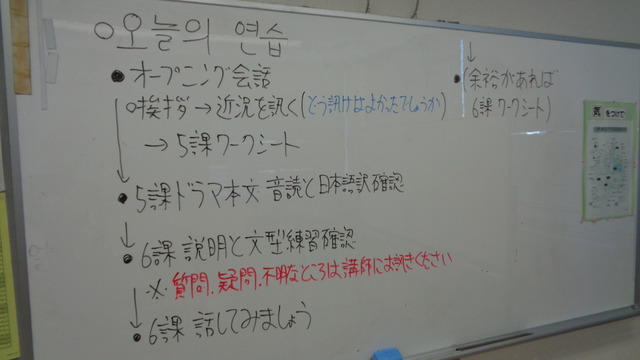 ○오늘의 연습
● オープニング会話
○挨拶→近況を訊く(どう訊けばよかったでしょうか)
→5課ワークシート
● 5課ドラマ本文 音読と日本語訳確認
● 6課 説明と文型練習確認
※.質問、疑問、不明なところは講師にお訊きください
● 6課 話してみましょう
● (余裕があれば
6課 ワークシート)
気をつけて